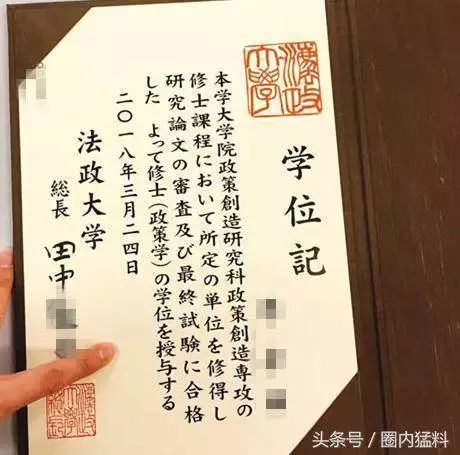 灋政
大學
学位記
本学大学院政策創造研究科政策創造専攻の
修士課程において所定の単位を修得し
研究論文の審査及び最終試験に合格
した よって修士(政策学)の学位を授与する
二〇一八年三月二四日
法政大学
総長 田中
头条号 / 圈内猛料